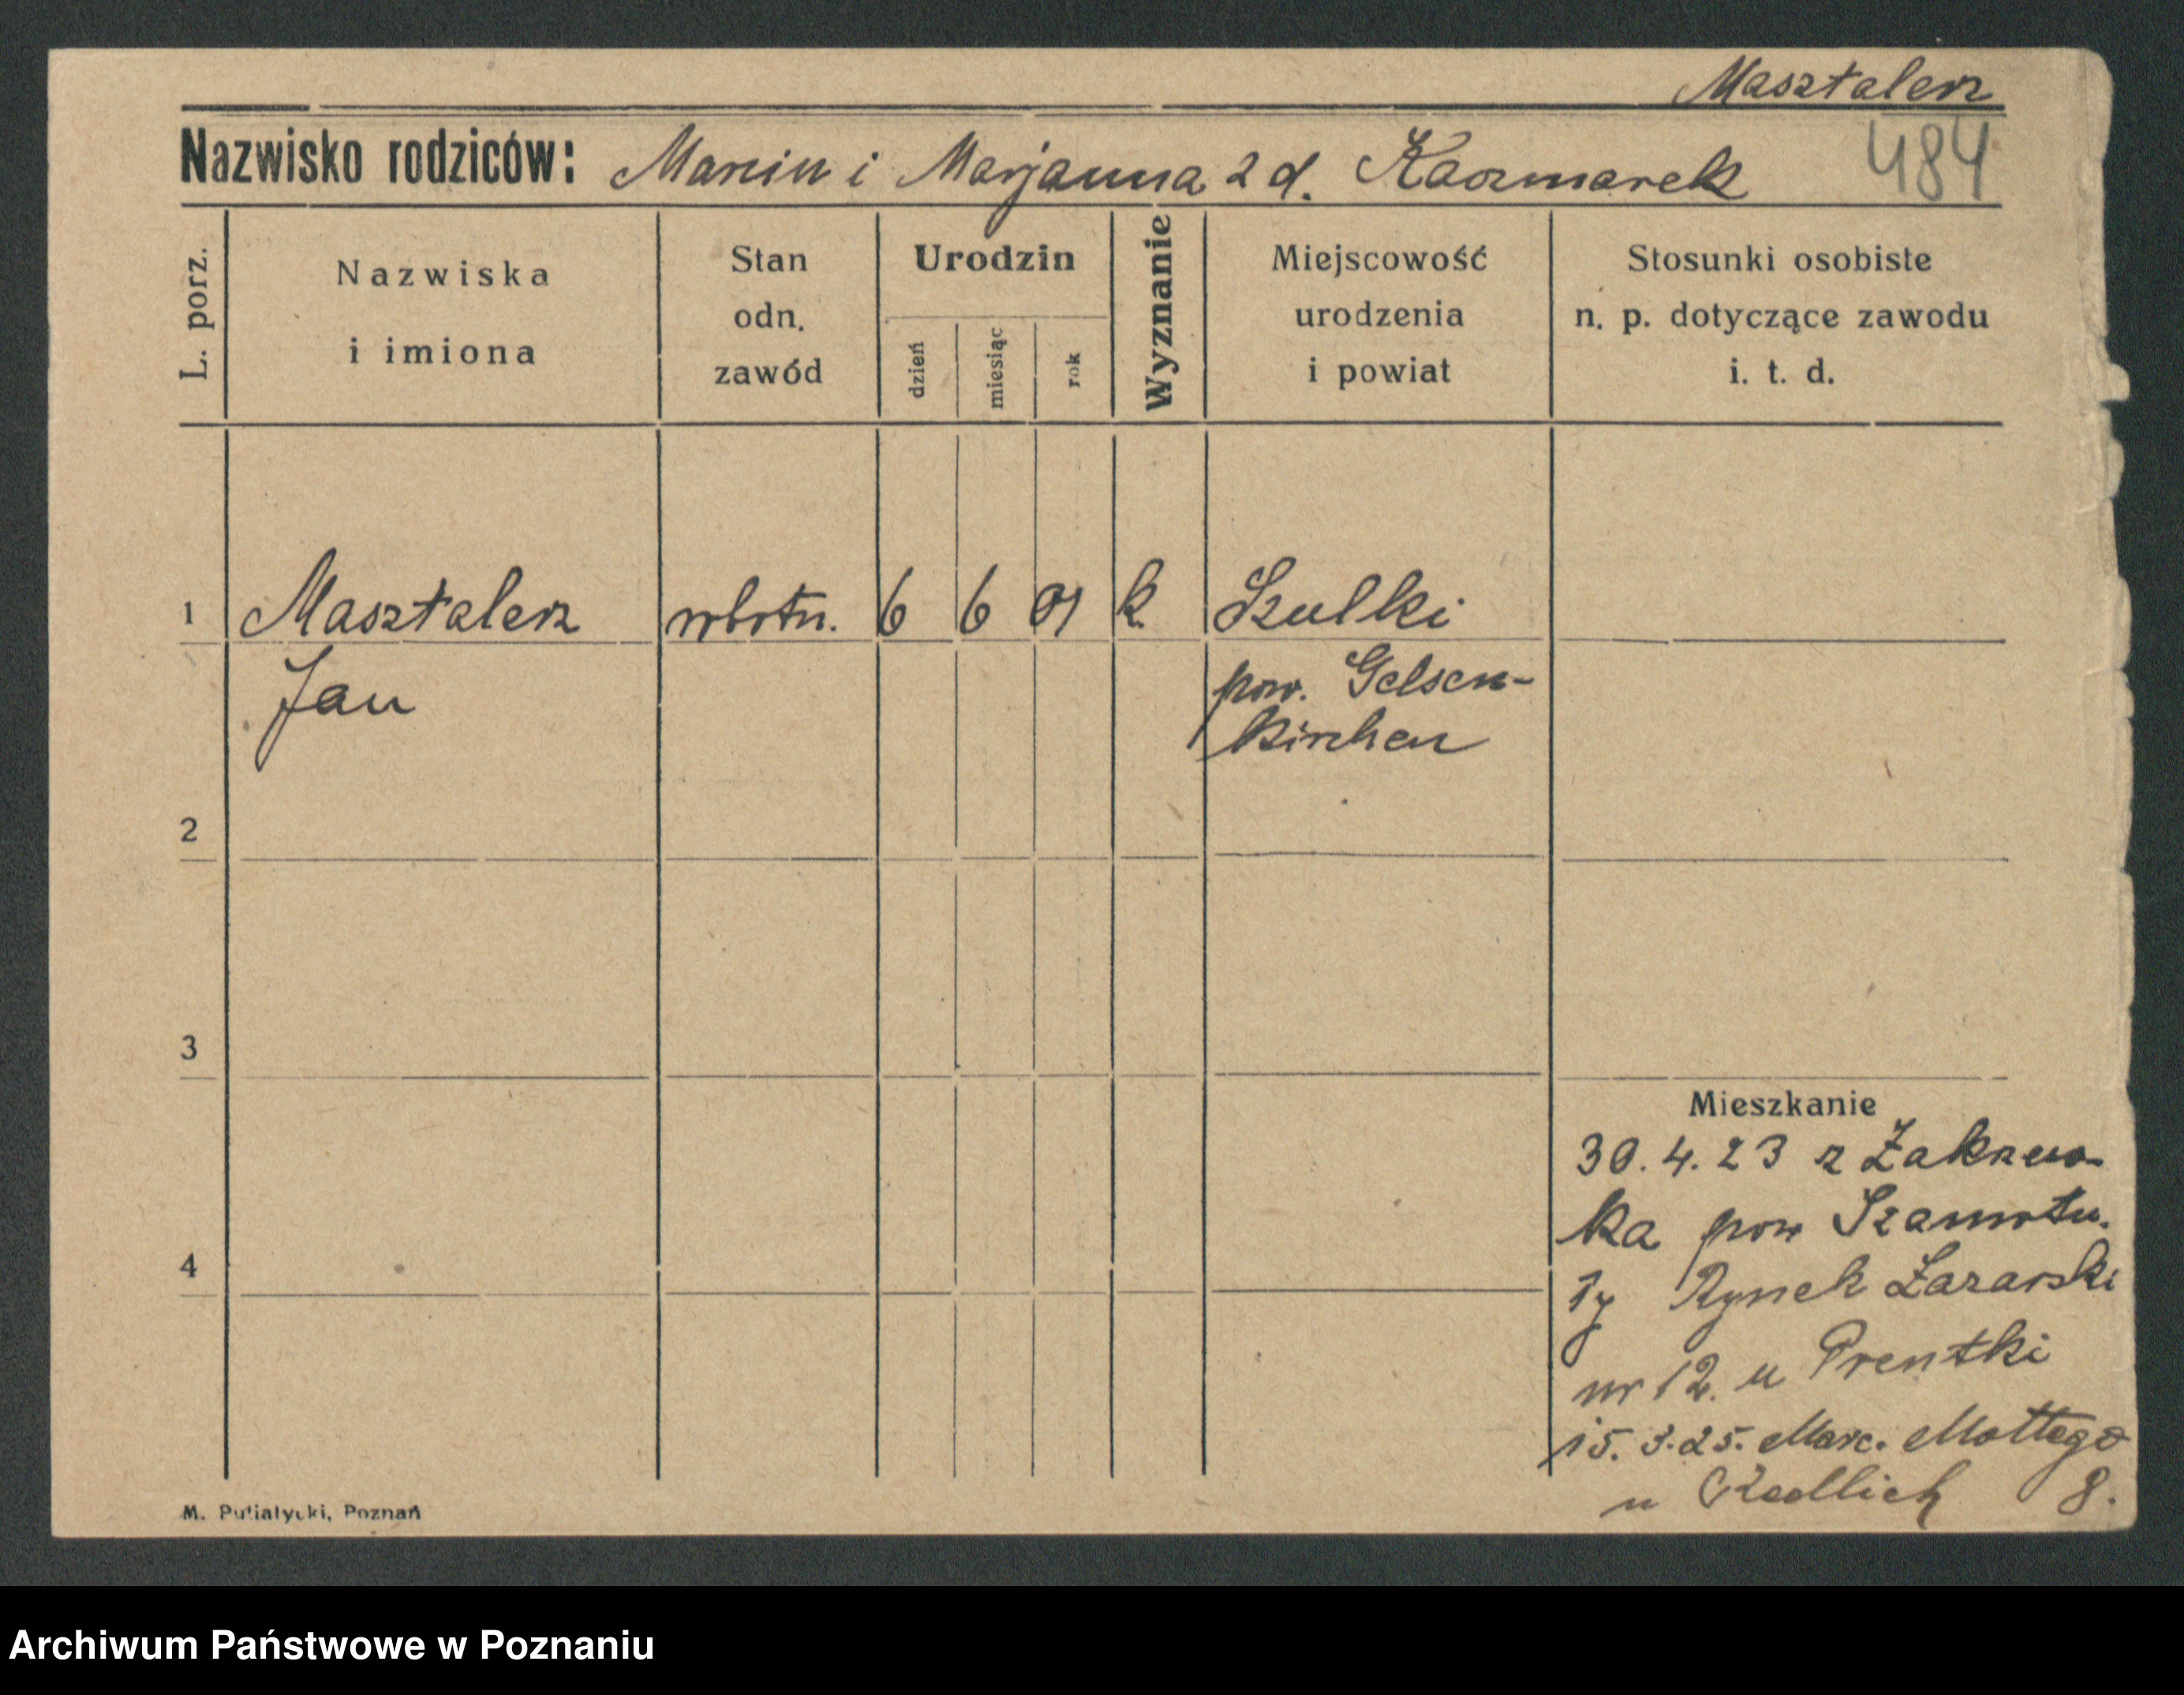 Masztalerz
Nazwisko rodziców: Marcin i Marjanna z d. Kaczmarek 484
L. porz.
Nazwiska
i imiona
Stan
odn.
zawód
Urodzin
dzień
miesiąc
rok
Wyznanie
Miejscowość
urodzenia
i powiat
Stosunki osobiste
n. p. dotyczące zawodu
i. t. d.
1 Masztalerz robotn. 6 6 01 k Szulki
Jan pow. Gelsen-
kirchen
2
3
4
Mieszkanie
30.4.23 z Zakrzew-
ka pow Szamotu.
Rynek Łazarski
nr 12. u Prentki
15.3.25. Marc. Mottego
u Redlich 8.
M. Putiatycki, Poznań
Archiwum Państwowe w Poznaniu